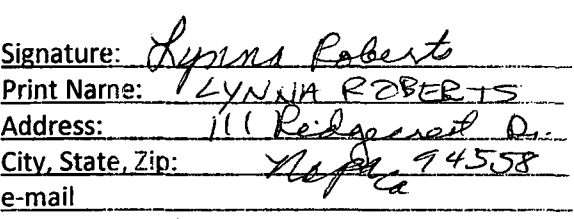 Signature: Lynna Roberts
Print Name: LYNNA ROBERTS
Address: 111 Ridgecrest Dr.
City, State, Zip: Napa Ca 94558
e-mail